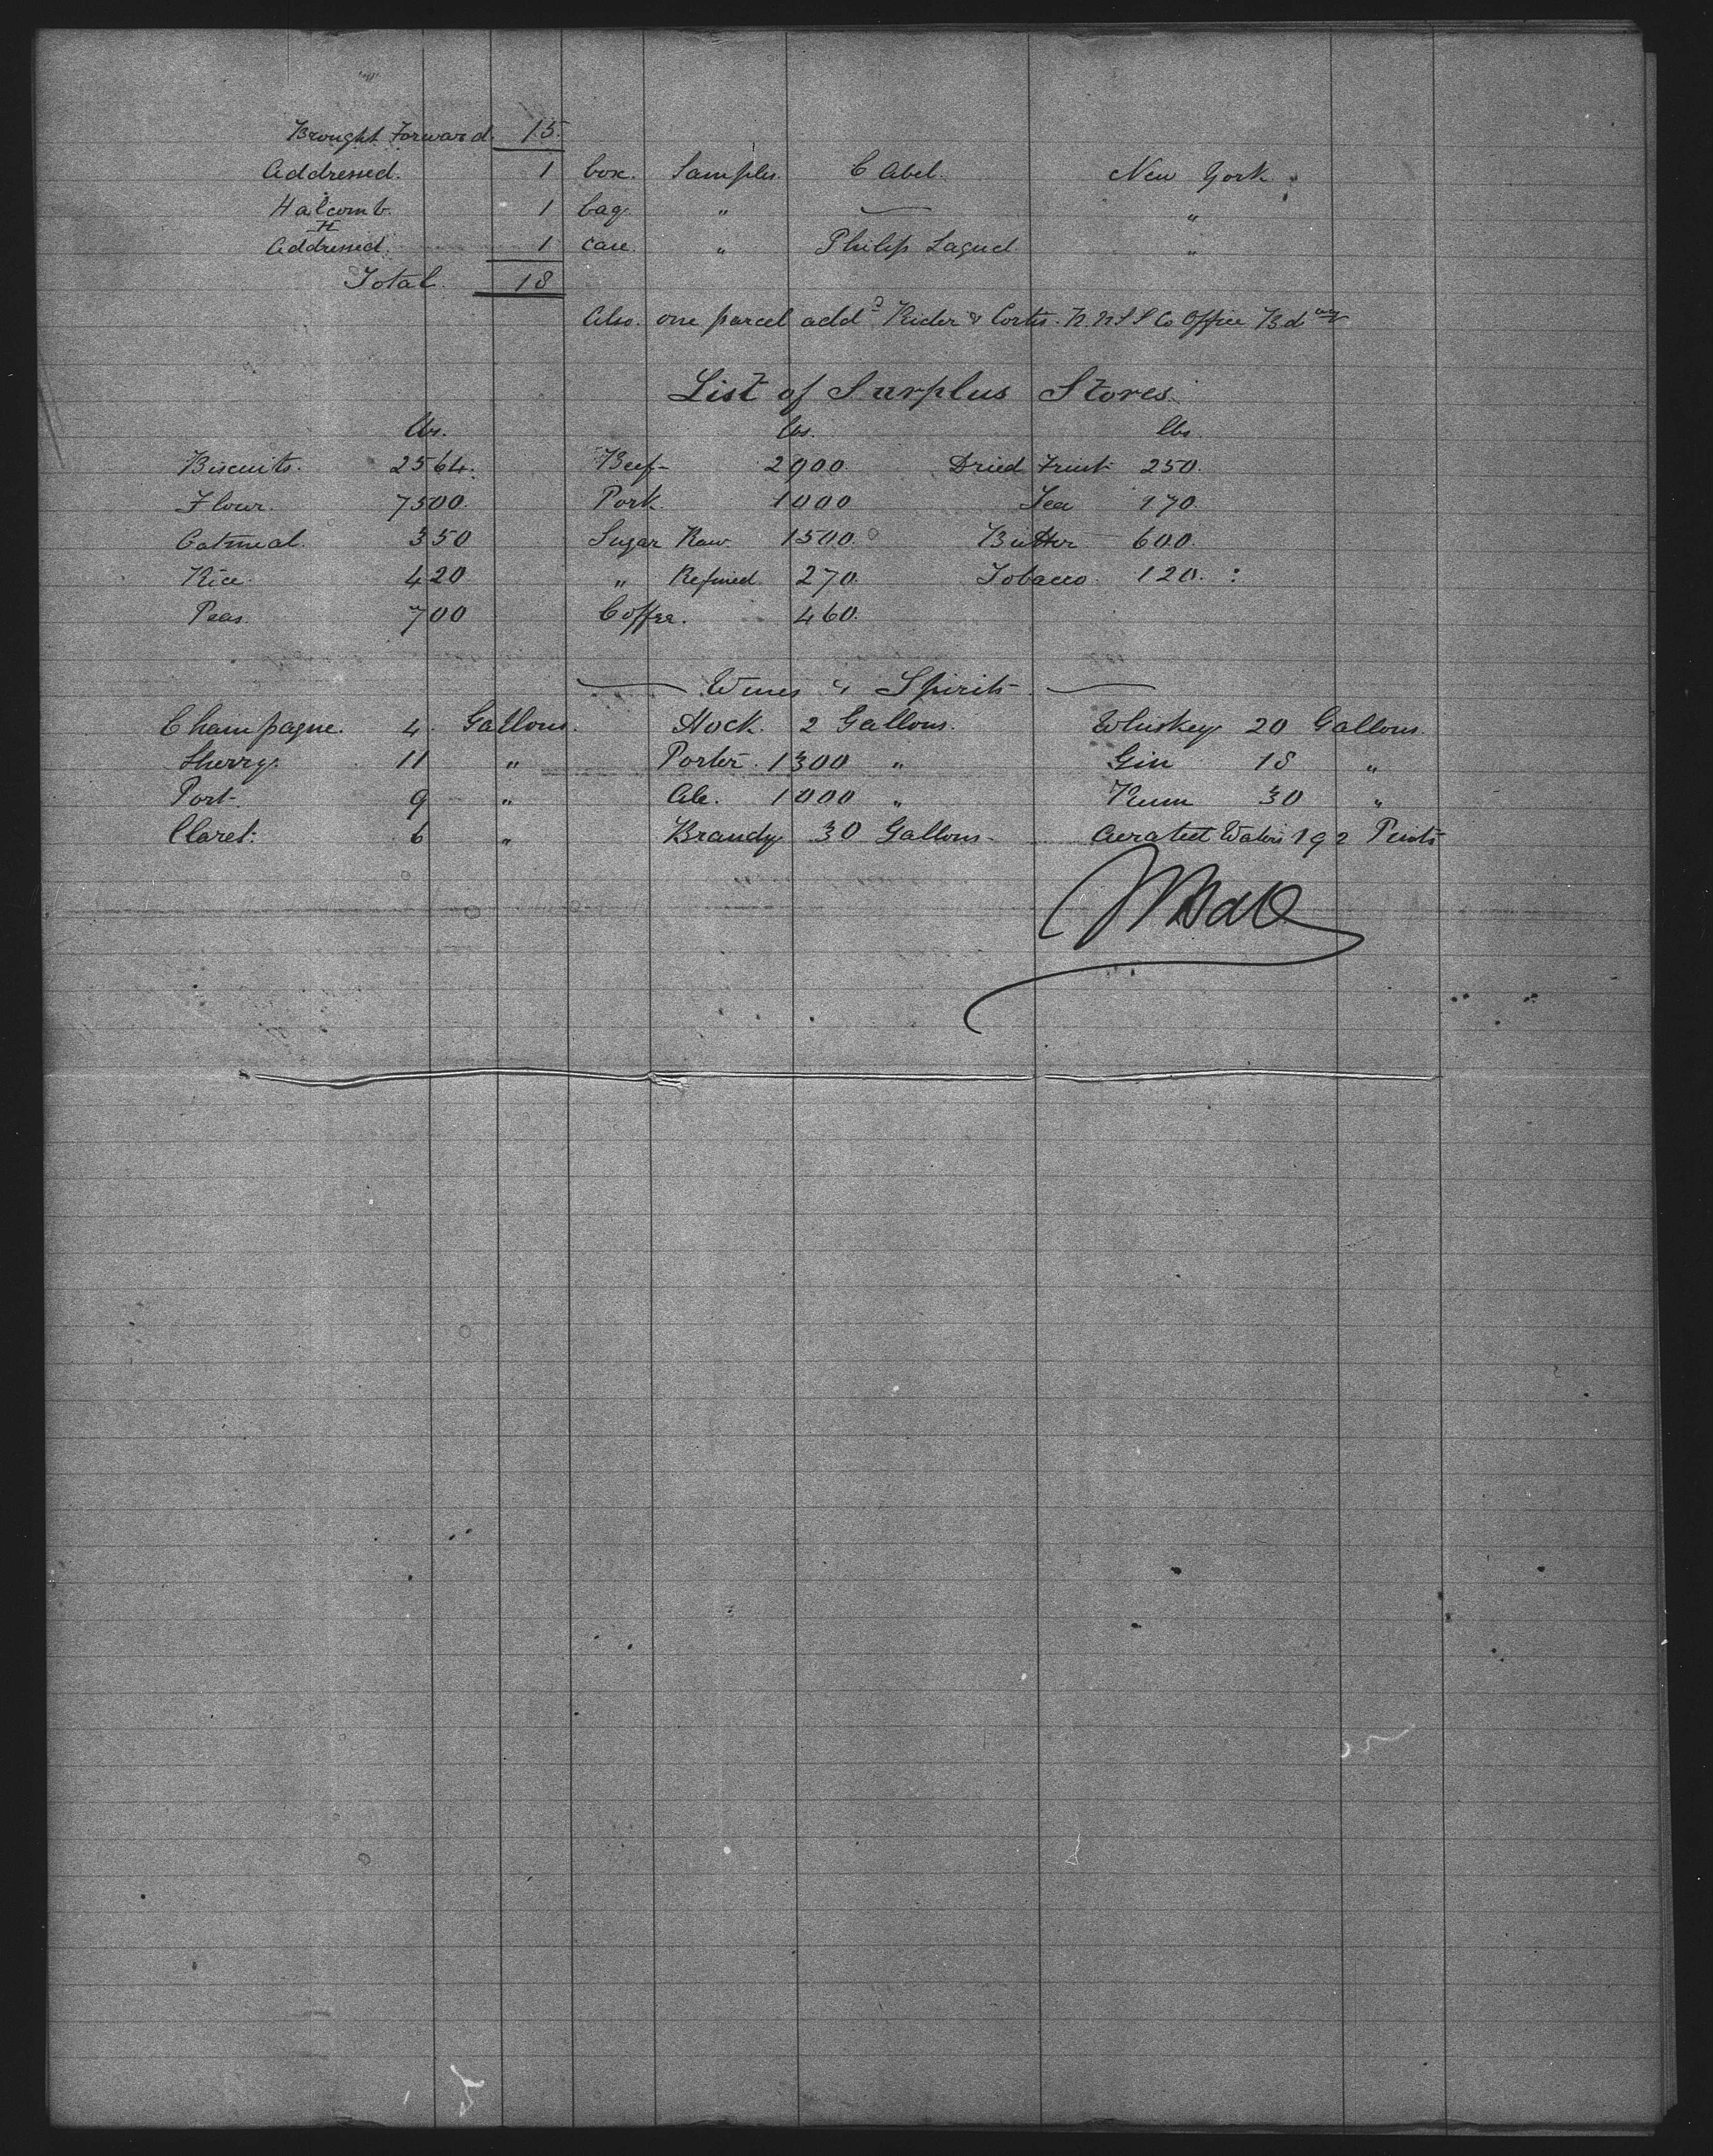 Brought Forward. 15.
Addressed. 1 box. Samples. C Abel. New York.
Halcomb. 1 bag. " — "
H
Addressed. 1 case. " Philip "
Total 18
Also. one parcel addd Rider & Co Office Bdway
List of Surplus Stores.
lbs. lbs. lbs.
Biscuits. 2564. Beef 2900. Dried Fruit 250.
Flour. 7500. Pork. 1000 Tea 170.
Oatmeal. 350 Sugar Raw. 1500. Butter 600.
Rice. 420 " Refined 270. Tobacco. 120.
Peas. 700 Coffee. 460.
Wines & Spirits
Champagne. 4. Gallons. Hock. 2 Gallons. Whiskey 20 Gallons
Sherry. 11 " Porter. 1300 " Gin 18 "
Port 9 " Ale. 1000 " Rum 30 "
Claret. 6 " Brandy 30 Gallons Aerated Waters 192 Pints